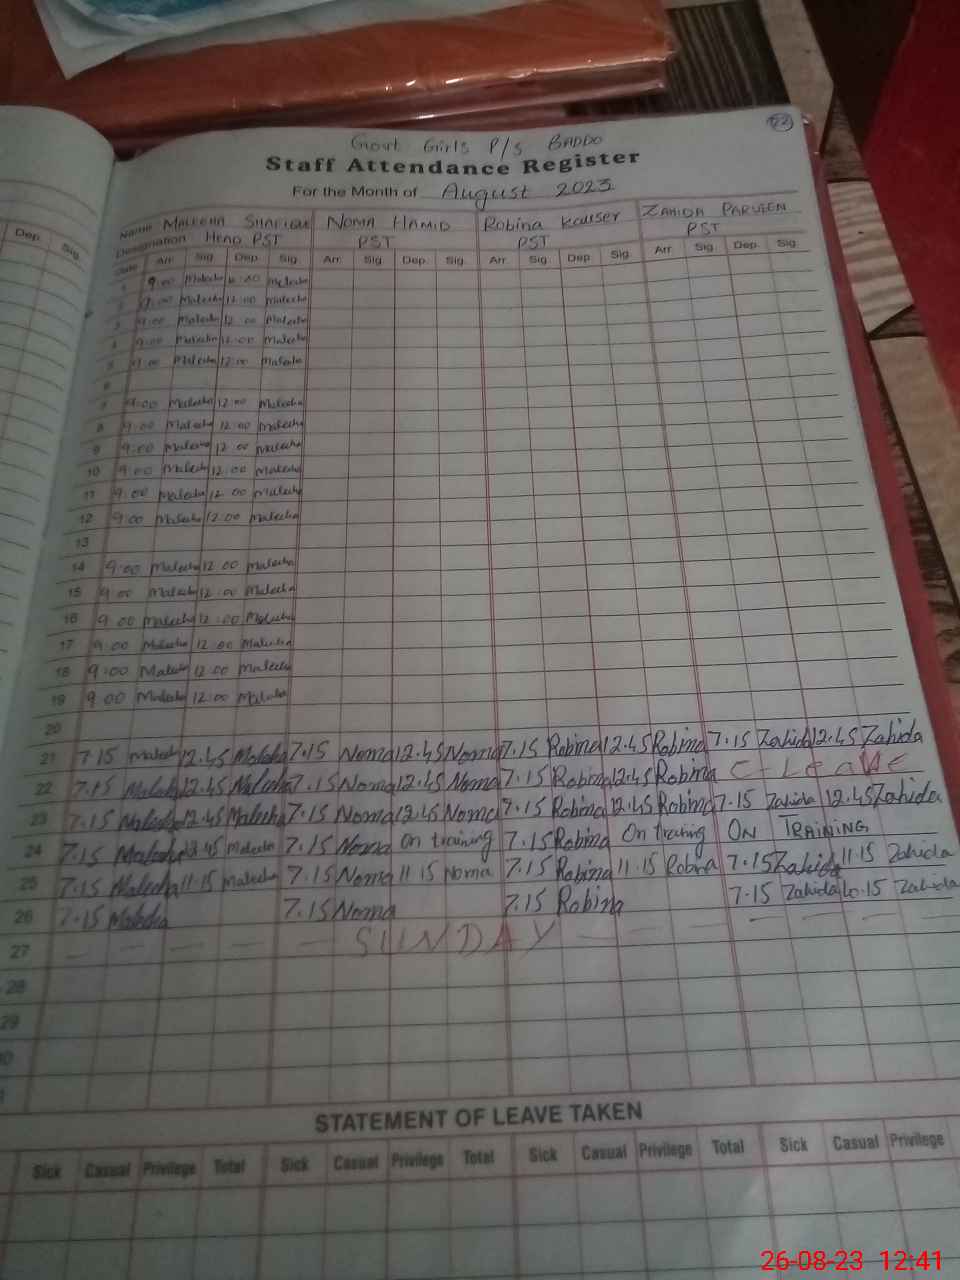 22
Govt Girls P/S BADDO
Staff Attendance Register
For the Month of August 2023
Name Maleeha Sharique NOMA HAMID Robina Kauser ZAHIDA PARVEEN
Designation HEAD PST PST PST PST
Date Arr. Sig Dep. Sig. Arr. Sig Dep. Sig. Arr. Sig Dep Sig Arr. Sig. Dep. Sig.
Dep. Sig.
1 9:00 Maleeha 12:00 Maleeha
2 9:00 Maleeha 12:00 Maleeha
3 9:00 Maleeha 12:00 Maleeha
4 9:00 Maleeha 12:00 Maleeha
5 9:00 Maleeha 12:00 Maleeha
6
7 9:00 Maleeha 12:00 Maleeha
8 9:00 Maleeha 12:00 Maleeha
9 9:00 Maleeha 12:00 Maleeha
10 9:00 Maleeha 12:00 Maleeha
11 9:00 Maleeha 12:00 Maleeha
12 9:00 Maleeha 12:00 Maleeha
13
14 9:00 Maleeha 12:00 Maleeha
15 9:00 Maleeha 12:00 Maleeha
16 9:00 Maleeha 12:00 Maleeha
17 9:00 Maleeha 12:00 Maleeha
18 9:00 Maleeha 12:00 Maleeha
19 9:00 Maleeha 12:00 Maleeha
20
21 7.15 Maleeha 12.45 Maleeha 7.15 Noma 12.45 Noma 7.15 Robina 12.45 Robina 7.15 Zahida 12.45 Zahida
22 7.15 Maleeha 12.45 Maleeha 7.15 Noma 12.45 Noma 7.15 Robina 12.45 Robina C-Leave
23 7.15 Maleeha 12.45 Maleeha 7.15 Noma 12.45 Noma 7.15 Robina 12.45 Robina 7.15 Zahida 12.45 Zahida
24 7.15 Maleeha 12.45 Maleeha 7.15 Noma On training 7.15 Robina On training ON TRAINING
25 7.15 Maleeha 11.15 Maleeha 7.15 Noma 11.15 Noma 7.15 Robina 11.15 Robina 7.15 Zahida 11.15 Zahida
26 7.15 Maleeha 7.15 Noma 7.15 Robina 7.15 Zahida 10.15 Zahida
27 SUNDAY
28
29
STATEMENT OF LEAVE TAKEN
Sick Casual Privilege Total Sick Casual Privilege Total Sick Casual Privilege Total Sick Casual Privilege
26-08-23 12:41